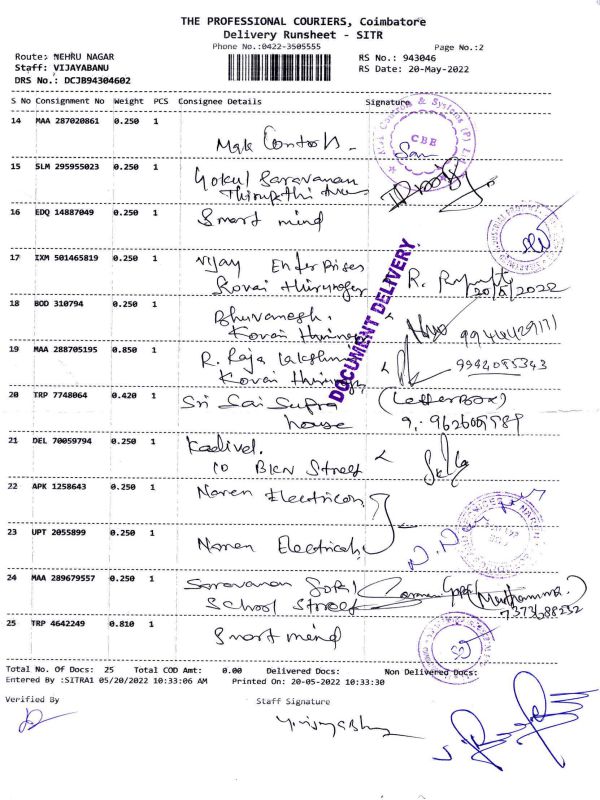 THE PROFESSIONAL COURIERS, Coimbatore
Delivery Runsheet - SITR
Phone No.:0422-3505555 Page No.:2
Route: NEHRU NAGAR RS No.: 943046
Staff: VIJAYABANU RS Date: 20-May-2022
DRS No.: DCJB94304602
S No Consignment No Weight PCS Consignee Details Signature
14 MAA 287020861 0.250 1
Mak Controls - CBE
15 SLM 295955023 0.250 1
Gokul Saravanan
Thirupathi
16 EDQ 14887049 0.250 1
Smart mind
17 IXM 501465819 0.250 1
Vijay Enterprises R.
Kovai 20/5/2022
DOCUMENT DELIVERY.
18 BOD 310794 0.250 1
Bhuvanesh.
Kovai
19 MAA 288705195 0.850 1
R. Raja Lakshmi 9944095343
Kovai
20 TRP 7748064 0.420 1
Sri Sai Supra (Letter Box)
house
21 DEL 70059794 0.250 1
Kadivel.
10 BKN Street
22 APK 1258643 0.250 1
Naren Electricals
23 UPT 2055899 0.250 1
Naren Electricals
24 MAA 289679557 0.250 1
Saravanan
School Street
25 TRP 4642249 0.810 1
Smart mind
Total No. Of Docs: 25 Total COD Amt: 0.00 Delivered Docs: Non Delivered Docs:
Entered By :SITRA1 05/20/2022 10:33:06 AM Printed On: 20-05-2022 10:33:30
Verified By Staff Signature